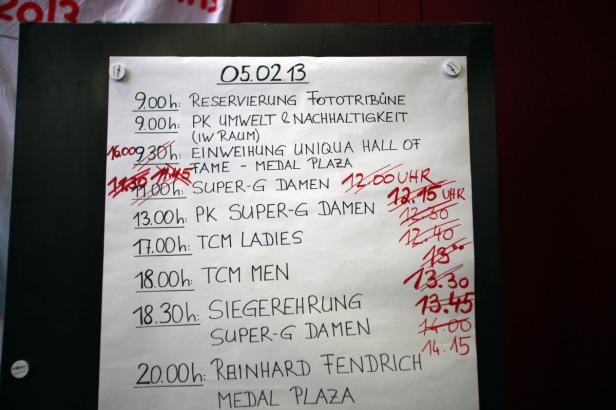 2013
05.02.13
9.00h: RESERVIERUNG FOTOTRIBÜNE
9.00h: PK UMWELT & NACHHALTIGKEIT
(IW RAUM)
16.00 9.30h: EINWEIHUNG UNIQUA HALL OF
FAME - MEDAL PLAZA
11.30 11.45
11.00h: SUPER-G DAMEN 12.00 UHR
12.15 UHR
13.00h: PK SUPER-G DAMEN 12.30
12.40
17.00h: TCM LADIES
13°°
18.00h: TCM MEN 13.30
18.30h: SIEGEREHRUNG 13.45
SUPER-G DAMEN 14.00
14.15
20.00h: REINHARD FENDRICH
MEDAL PLAZA